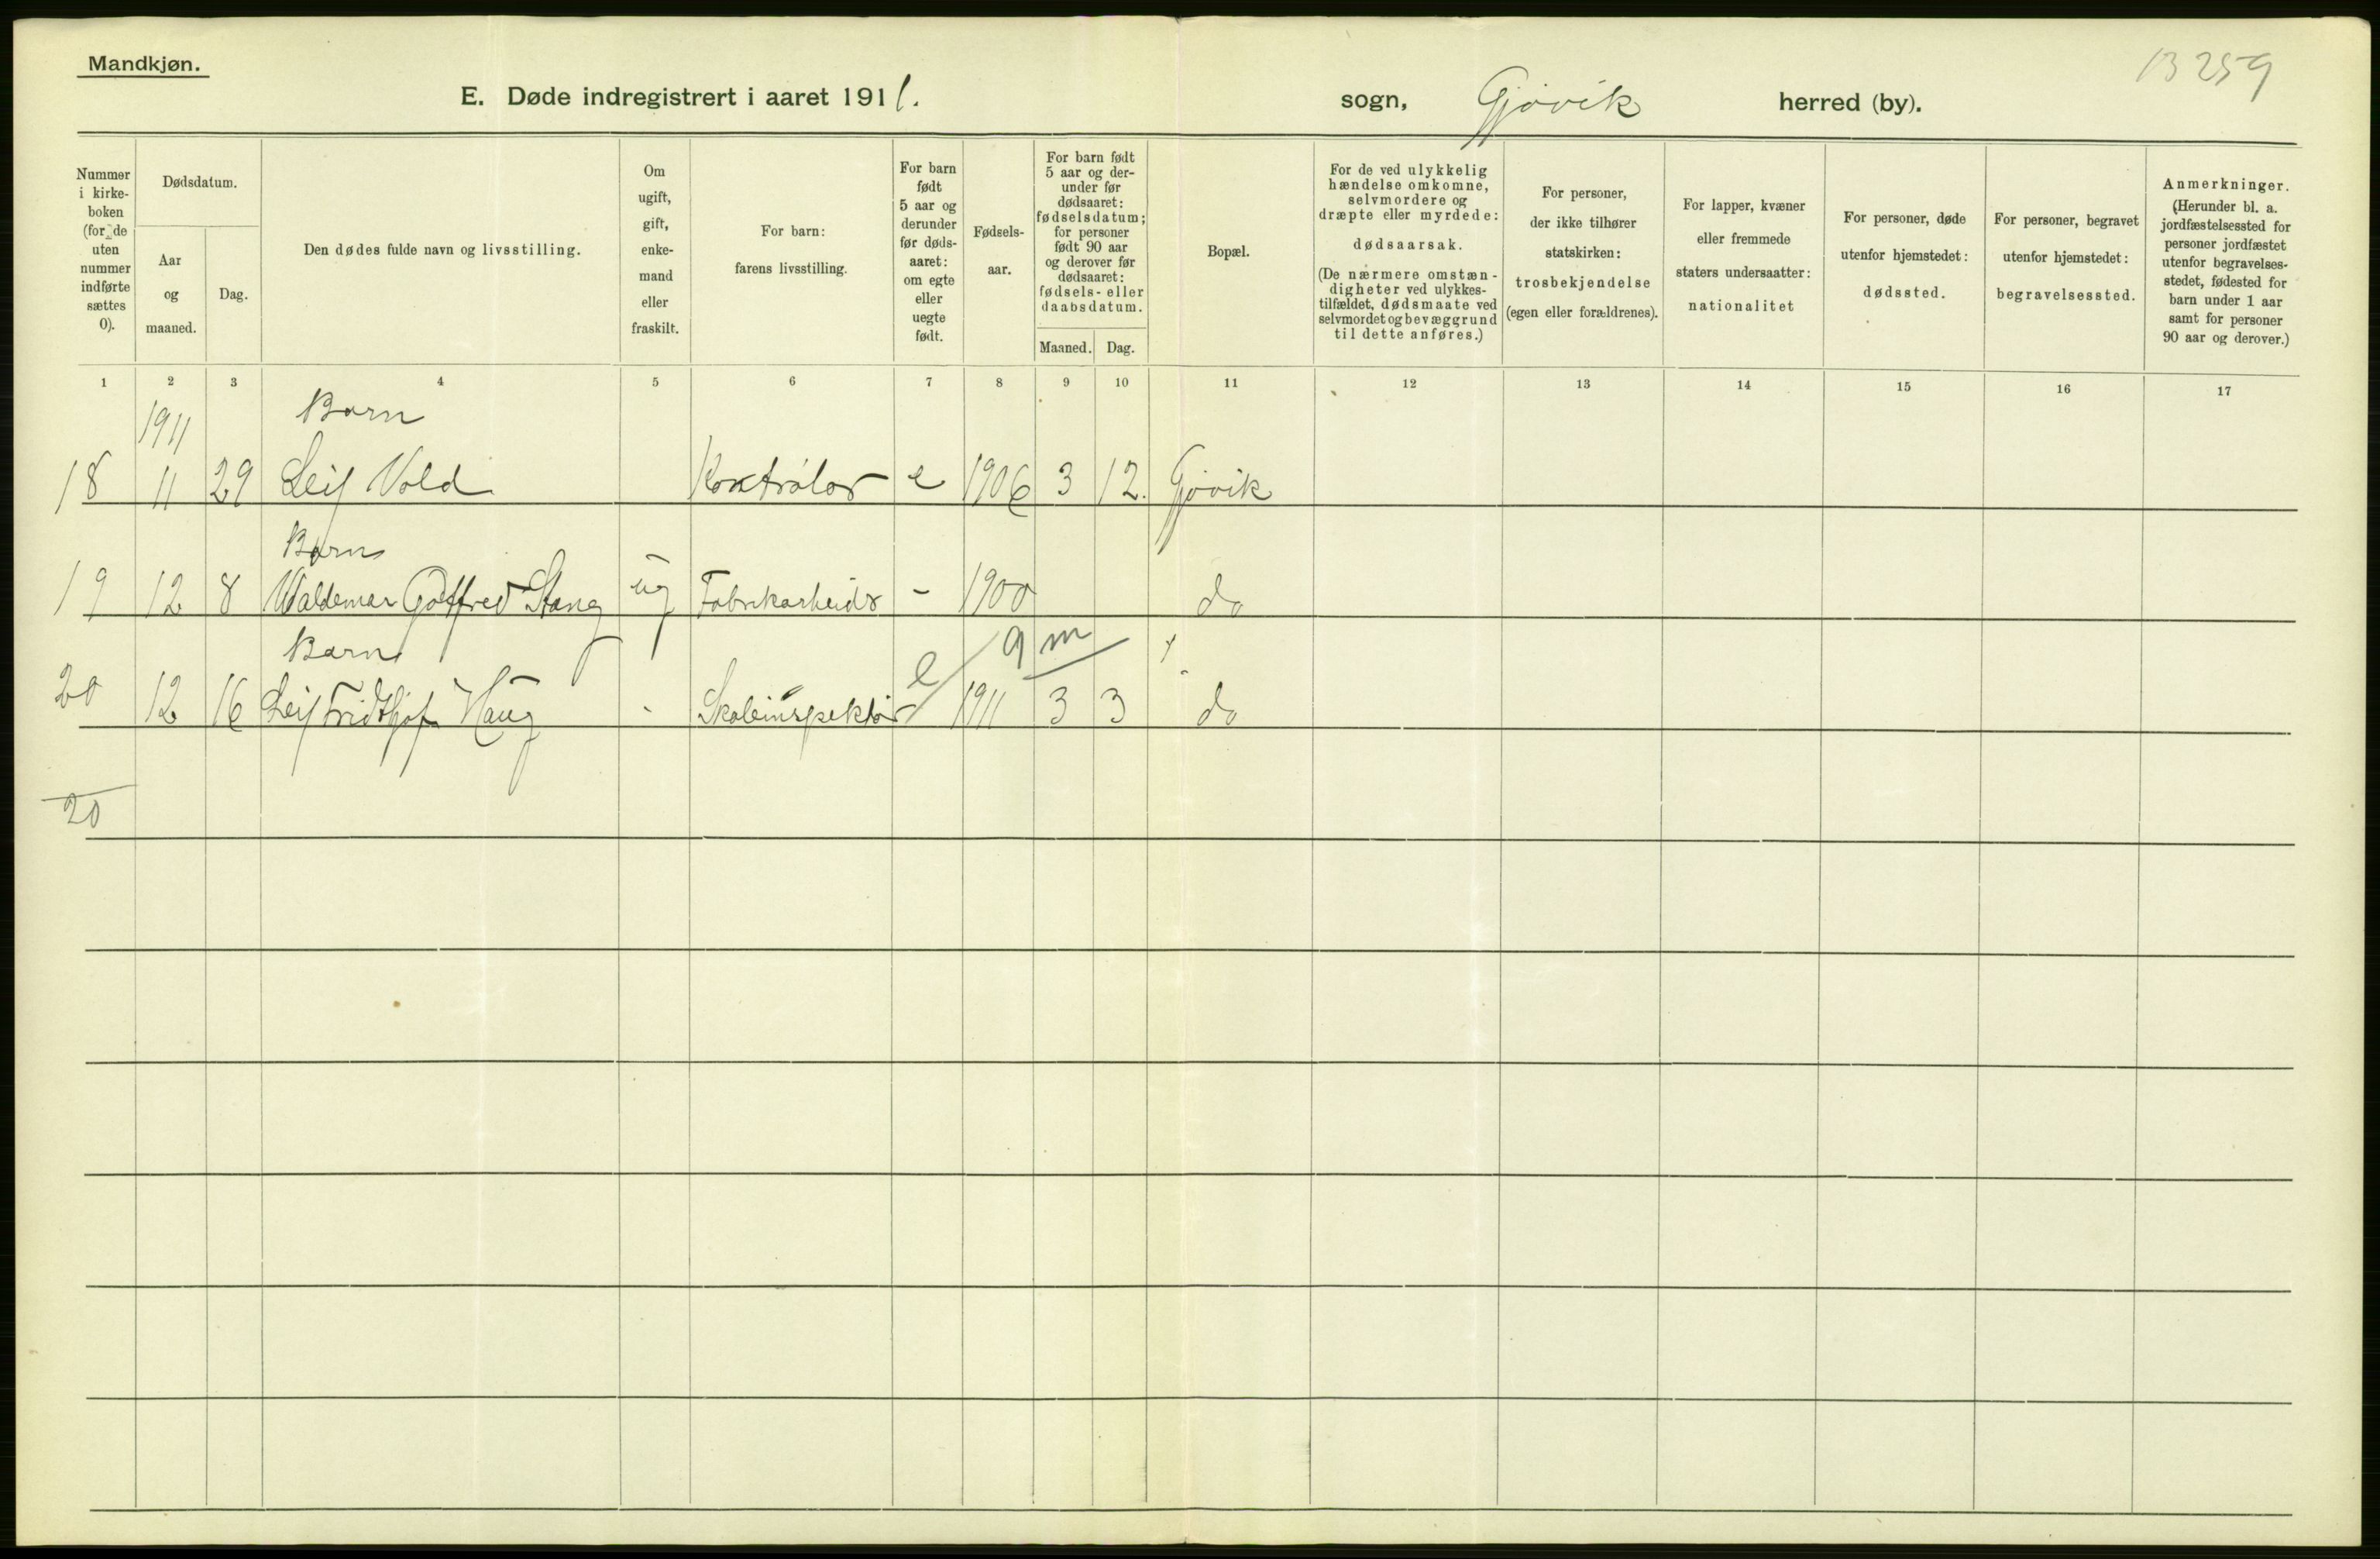 Mandkjøn.
13259
E. Døde indregistrert i aaret 1911.
sogn, Gjøvik herred (by).
Nummer i kirke-boken (for de uten nummer indførte sættes 0).
Dødsdatum.
Aar og maaned.
Dag.
Den dødes fulde navn og livsstilling.
Om ugift, gift, enke-mand eller fraskilt.
For barn: farens livsstilling.
For barn født 5 aar og derunder før døds-aaret: om egte eller uegte født.
Fødsels-aar.
For barn født 5 aar og der-under før dødsaaret: fødselsdatum; for personer født 90 aar og derover før dødsaaret: fødsels- eller daabsdatum.
Maaned.
Dag.
Bopæl.
For de ved ulykkelig hændelse omkomne, selvmordere og dræpte eller myrdede: dødsaarsak. (De nærmere omstæn-digheter ved ulykkes-tilfældet, dødsmaate ved selvmordet og bevæggrund til dette anføres.)
For personer, der ikke tilhører statskirken: trosbekjendelse (egen eller forældrenes).
For lapper, kvæner eller fremmede staters undersaatter: nationalitet
For personer, døde utenfor hjemstedet: dødssted.
For personer, begravet utenfor hjemstedet: begravelsessted.
Anmerkninger. (Herunder bl. a. jordfæstelsessted for personer jordfæstet utenfor begravelses-stedet, fødested for barn under 1 aar samt for personer 90 aar og derover.)
1 2 3 4 5 6 7 8 9 10 11 12 13 14 15 16 17
1911 Barn
18 11 29 Leif Vold Kontrolør e 1906 3 12. Gjøvik
Barn
19 12 8 Waldemar Gottfred Stang ug Fabrikarbeidr - 1900 do
Barn 9 m
20 12 16 Leif Fridthjof Haug - Skoleinspektør e 1911 3 3 do
20